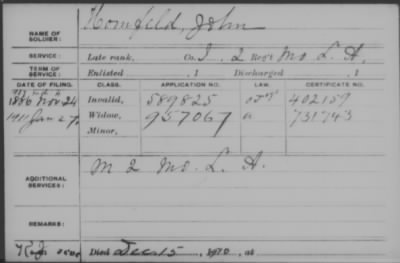 NAME OF SOLDIER: Hornfeld, John
SERVICE: Late rank, Co. I, 2 Reg't Mo. L. A.
TERM OF SERVICE: Enlisted , 1 Discharged , 1
DATE OF FILING. CLASS. APPLICATION NO. LAW. CERTIFICATE NO.
1886 Nov 24 Invalid, 589825 402159
1911 Jan 27 Widow, 957067 a 731743
Minor,
ADDITIONAL SERVICES: M 2 Mo. L. A.
REMARKS:
Died Dec 15, 1910, at